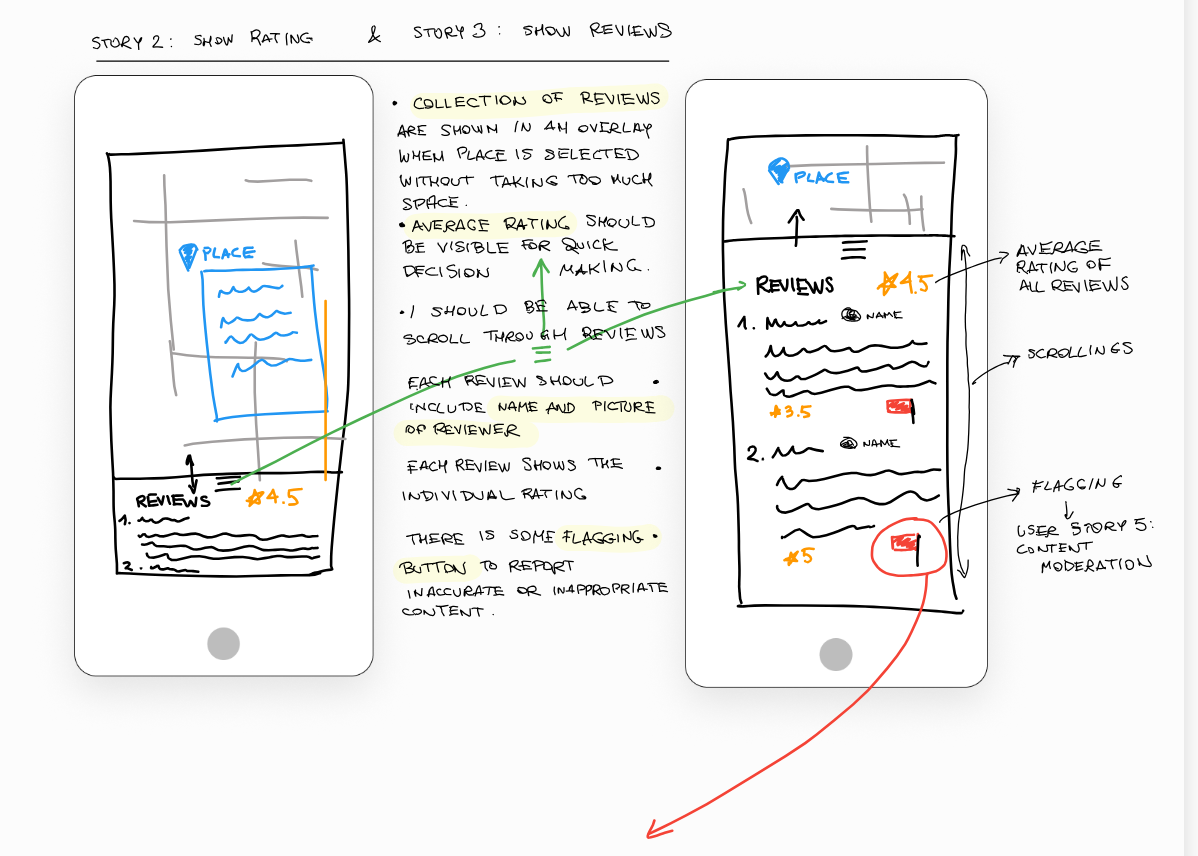 STORY 2: SHOW RATING & STORY 3: SHOW REVIEWS
PLACE
REVIEWS ☆4.5
1.
2.
• COLLECTION OF REVIEWS
ARE SHOWN IN AN OVERLAY
WHEN PLACE IS SELECTED
WITHOUT TAKING TOO MUCH
SPACE.
• AVERAGE RATING SHOULD
BE VISIBLE FOR QUICK
DECISION MAKING.
• I SHOULD BE ABLE TO
SCROLL THROUGH REVIEWS
EACH REVIEW SHOULD •
INCLUDE NAME AND PICTURE
OF REVIEWER
EACH REVIEW SHOWS THE •
INDIVIDUAL RATING
THERE IS SOME FLAGGING •
BUTTON TO REPORT
INACCURATE OR INAPPROPRIATE
CONTENT.
PLACE
REVIEWS ☆4.5
1. NAME
★3.5
2. NAME
★5
AVERAGE
RATING OF
ALL REVIEWS
SCROLLINGS
FLAGGING
USER STORY 5:
CONTENT
MODERATION